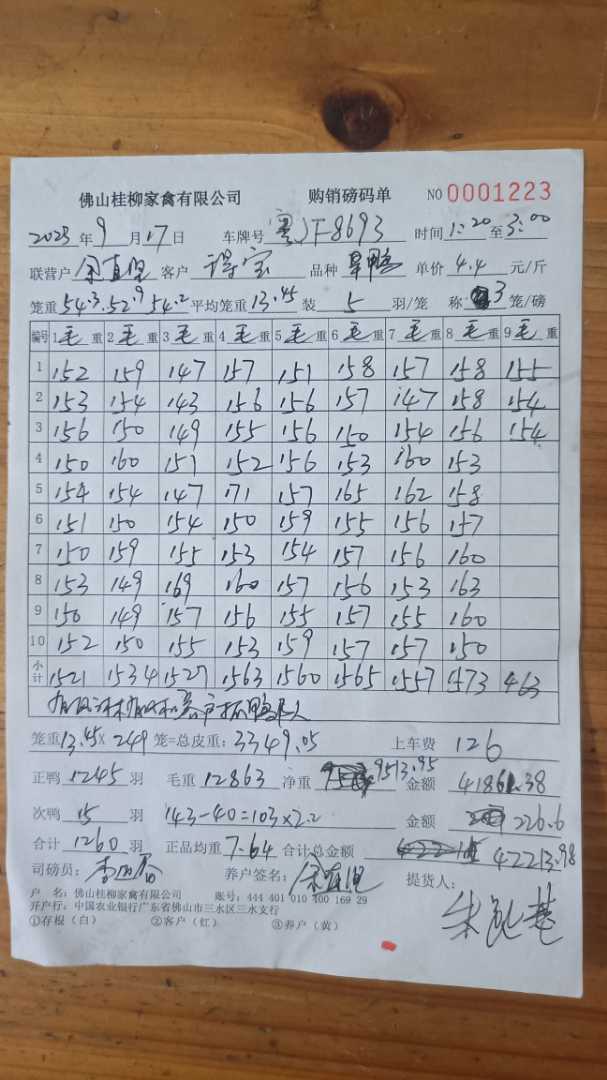 佛山桂柳家禽有限公司 购销磅码单 NO 0001223
2023年9月17日 车牌号 粤JF8693 时间 1:20 至 3:00
联营户 余直坚 客户 品种 旱鸭 单价 4.4 元/斤
笼重 54.3.52.9 54.2 平均笼重 13.45 装 5 羽/笼 称 3 笼/磅
编号 1毛重 2毛重 3毛重 4毛重 5毛重 6毛重 7毛重 8毛重 9毛重
1 152 159 147 157 151 158 157 158 155
2 153 154 143 156 156 157 147 158 154
3 156 150 149 155 156 150 154 156 154
4 150 160 151 152 156 153 160 153
5 154 154 147 171 157 165 162 158
6 151 150 154 150 159 155 156 157
7 150 159 155 153 154 157 156 160
8 153 149 169 160 157 156 153 163
9 150 149 157 156 155 157 155 160
10 152 150 155 153 159 157 157 150
小计 1521 1534 1527 1563 1560 1565 1557 1573 463
笼重 13.45 × 249 笼=总皮重: 3349.05 上车费 126
正鸭 1245 羽 毛重 12863 净重 9513.95 金额 41861.38
次鸭 15 羽 143-40=103×2.2 金额 226.6
合计 1260 羽 正品均重 7.64 合计总金额 42213.98
司磅员: 养户签名: 余直坚 提货人:
户 名: 佛山桂柳家禽有限公司 账号: 444 401 010 400 169 29
开户行: 中国农业银行广东省佛山市三水区三水支行
①存根（白） ②客户（红） ③养户（黄）